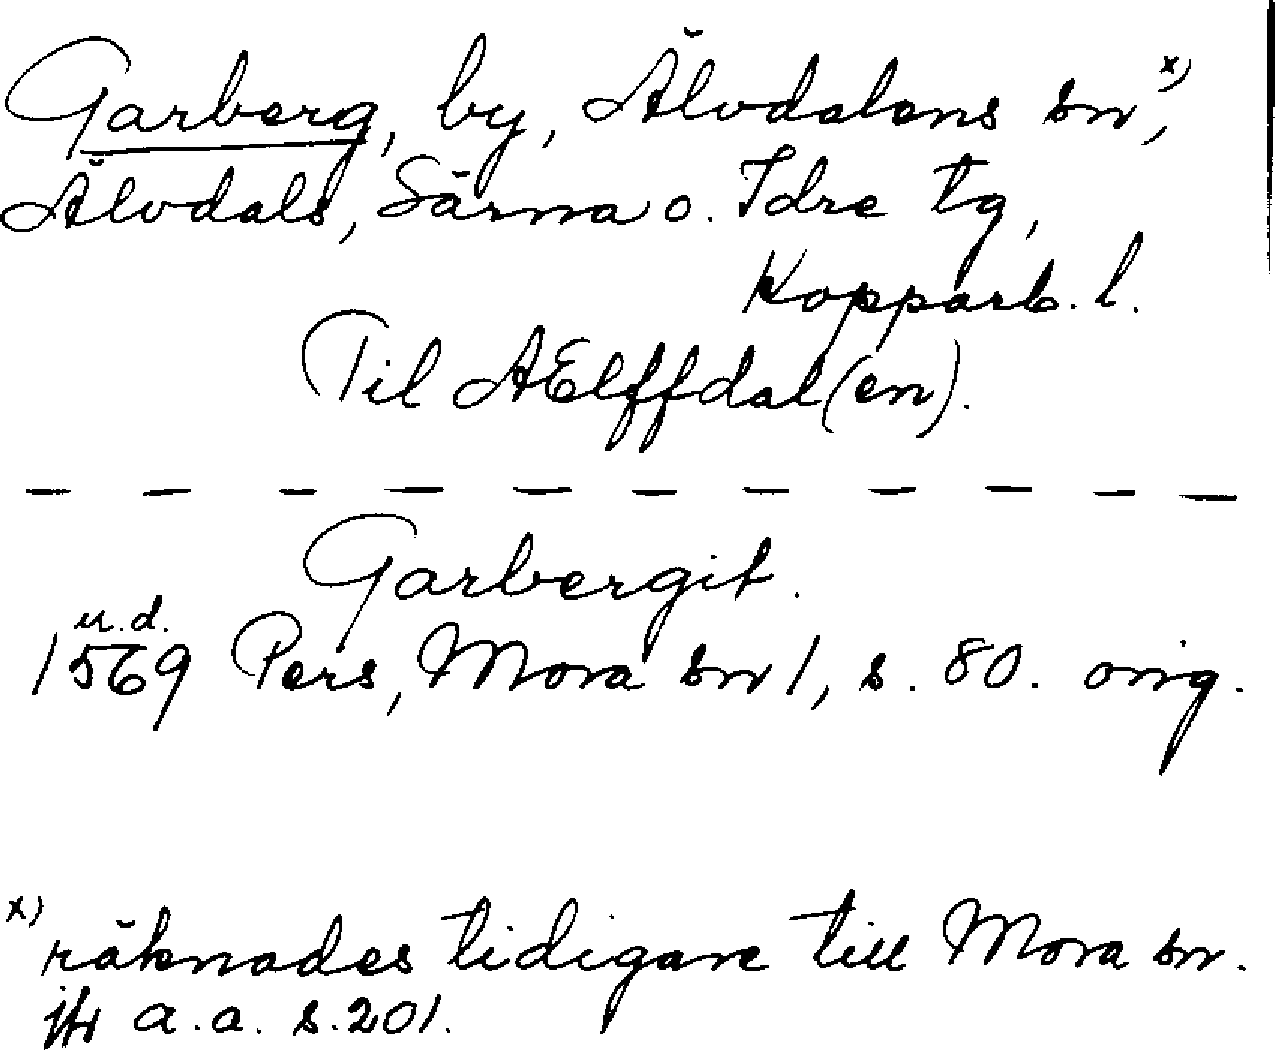 Garberg, by, Älvdalens sn x),
Älvdals, Särna o. Idre tg,
Kopparb. l.
Til AElffdal(en).
— — — — — — — — — — —
Garbergit.
1569 u.d. Pers, Mora sn 1, s. 80. orig.
x) räknades tidigare till Mora sn.
jfr a.a. s. 201.